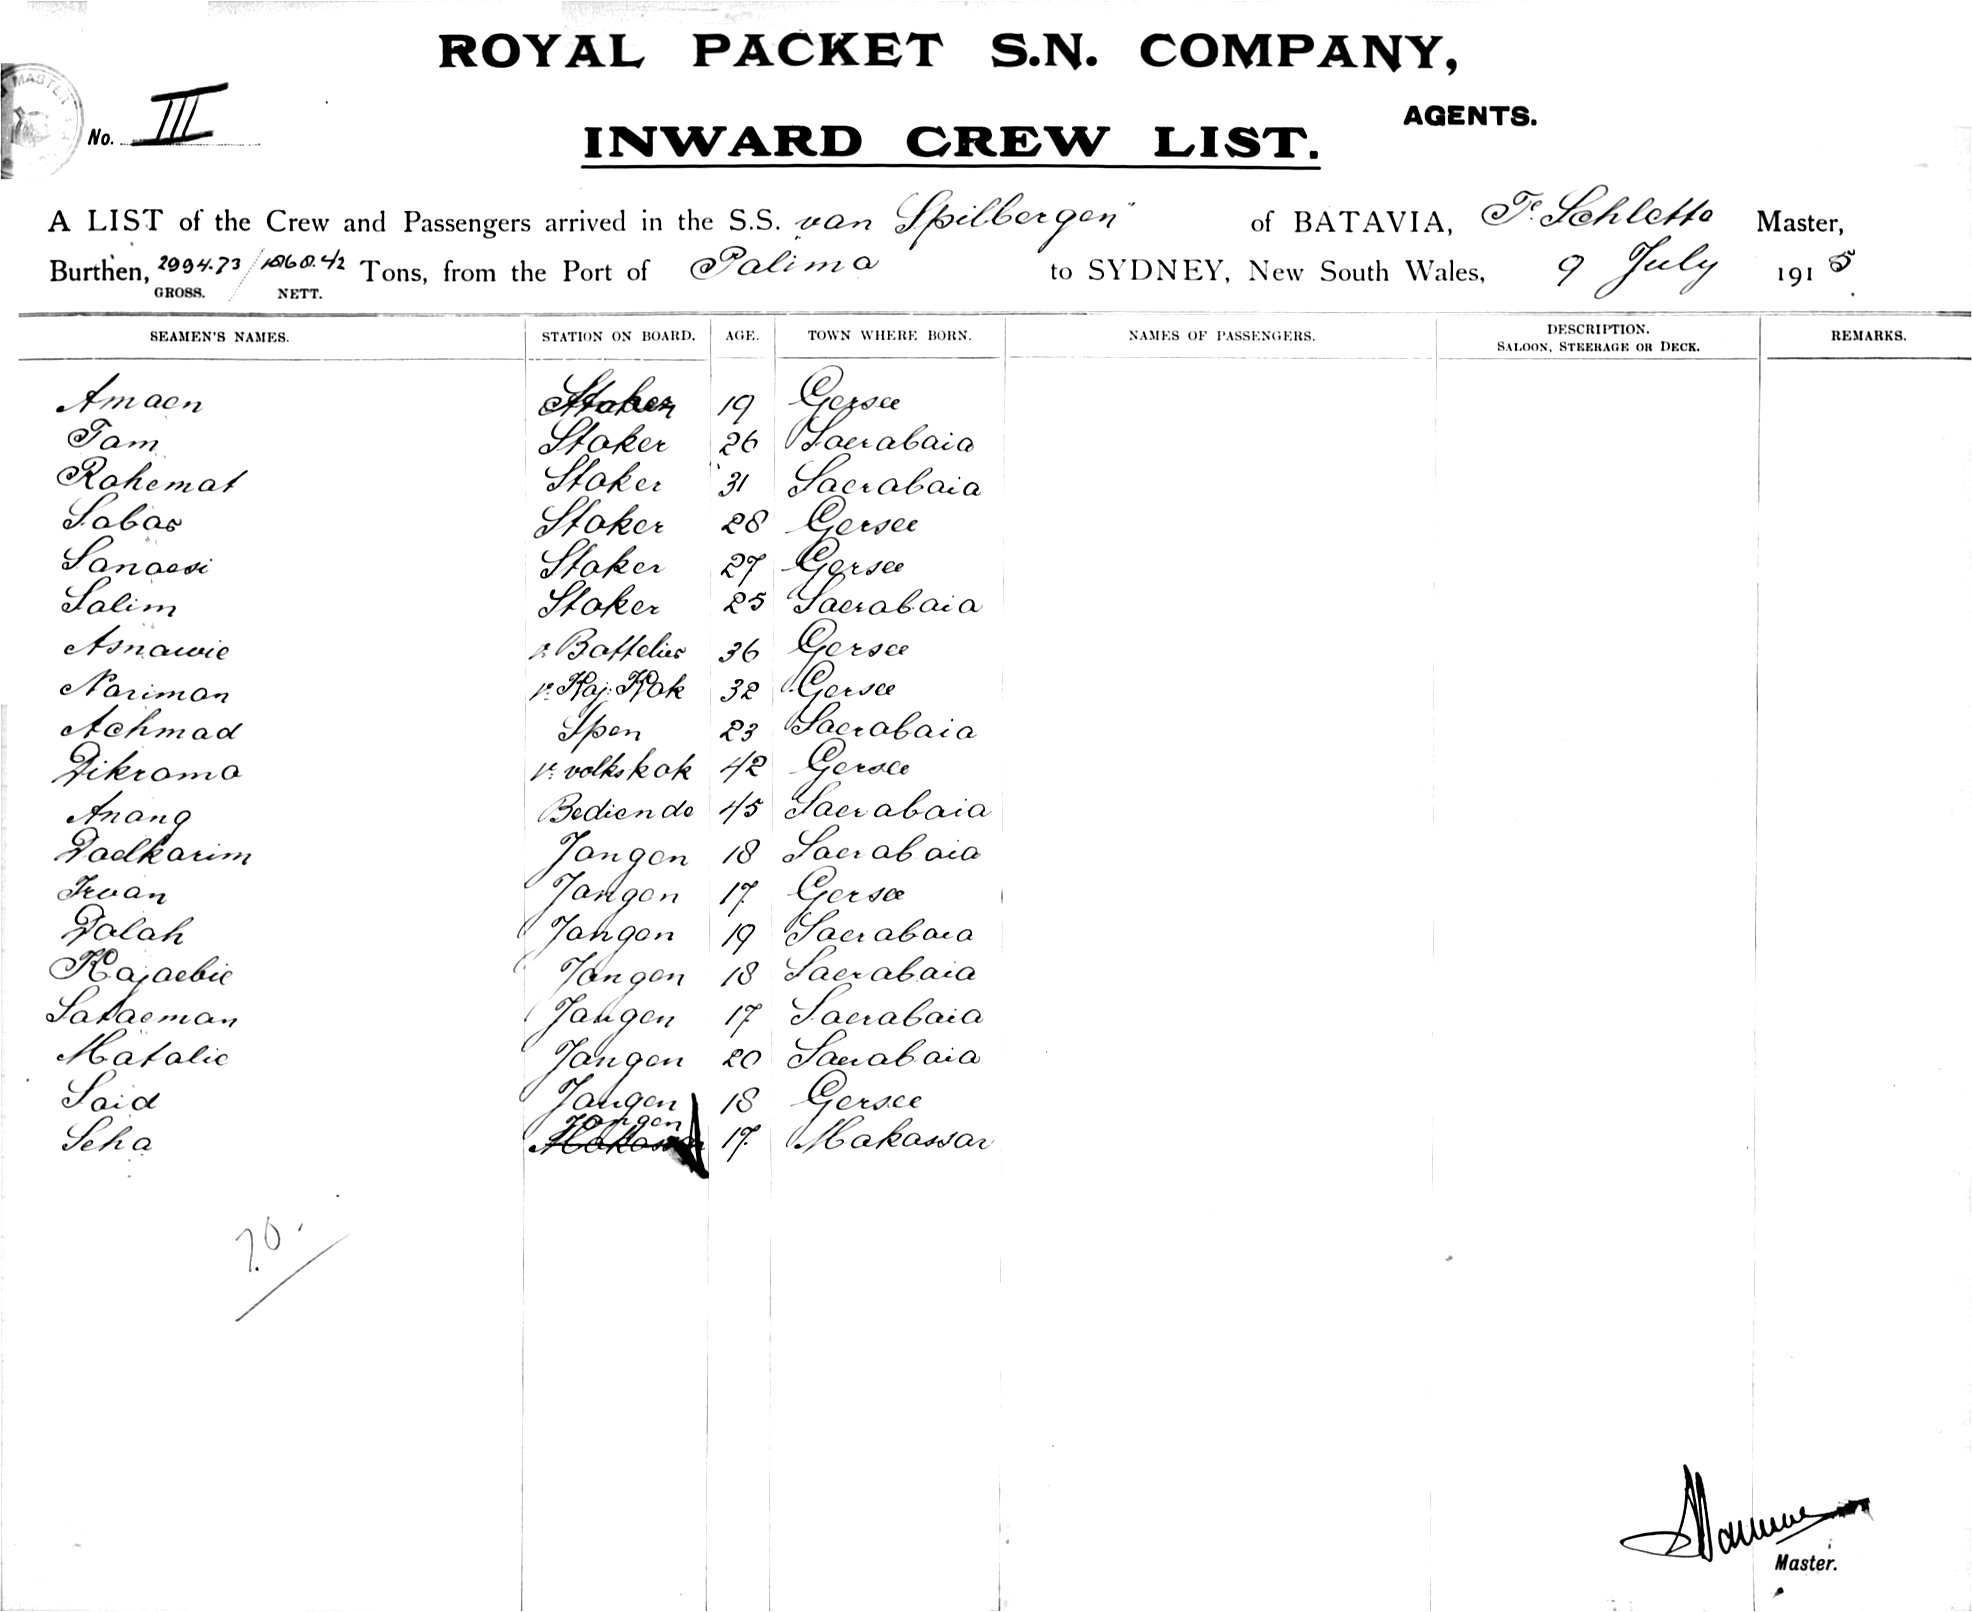 ROYAL PACKET S.N. COMPANY,
AGENTS.
MASTER
No. III
INWARD CREW LIST.
A LIST of the Crew and Passengers arrived in the S.S. "van Spilbergen" of BATAVIA, Master,
Burthen, 2994.73 / 1860.42 Tons, from the Port of Palima to SYDNEY, New South Wales, 9 July 1915
GROSS. NETT.
SEAMEN'S NAMES. STATION ON BOARD. AGE. TOWN WHERE BORN. NAMES OF PASSENGERS. DESCRIPTION. SALOON, STEERAGE OR DECK. REMARKS.
Amaen Stoker 19 Gersee
Tam Stoker 26 Saerabaia
Rahemat Stoker 31 Saerabaia
Sabar Stoker 28 Gersee
Stoker 27 Gersee
Salim Stoker 25 Saerabaia
Asnawie Bottelier 36 Gersee
Nariman Kaj. Kok 32 Gersee
Achmad Spen 23 Saerabaia
Dikrama volkskok 42 Gersee
Anang Bediende 45 Saerabaia
Daelkarim Jongen 18 Saerabaia
Irvan Jongen 17 Gersee
Dalah Jongen 19 Saerabaia
Kajaebie Jongen 18 Saerabaia
Jongen 17 Saerabaia
Matalie Jongen 20 Saerabaia
Said Jongen 18 Gersee
Seha Jongen 17 Makassar
20.
Master.